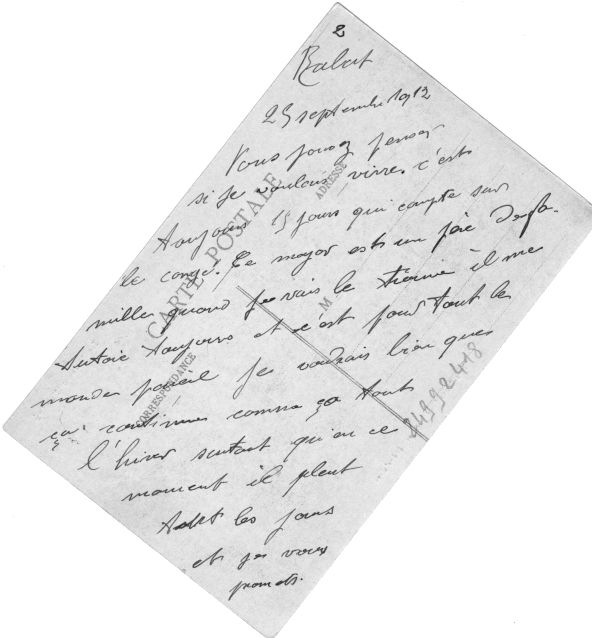 2
Rabat
25 septembre 1912
Vous pouvez penser
si je voulais vivre c'est
toujours 15 jours qui compte sur
le congé. Ce major est un père de fa-
mille quand je vais le trouver il me
tutoie toujours et c'est pour tout le
monde pareil je voudrais bien que
ça continue comme ça tout
l'hiver surtout qu'en ce
moment il pleut
tout les jours
et je vous
promets.
CARTE POSTALE
CORRESPONDANCE
ADRESSE
M